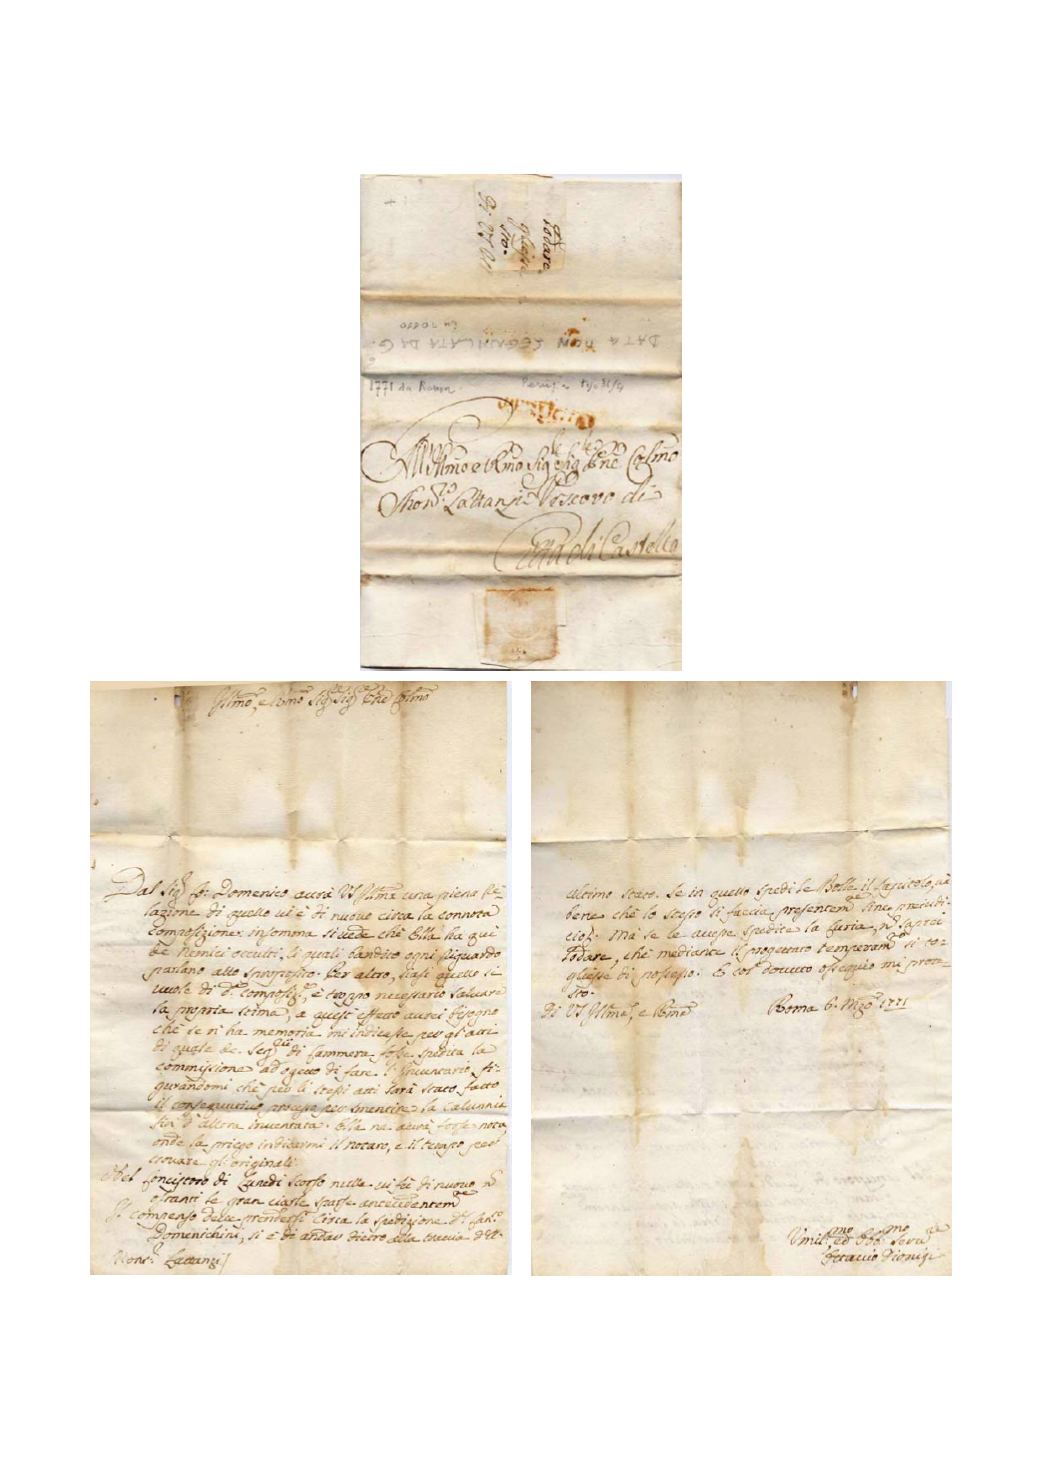 1771 da Roma
Perugia
DATA NON SEGNALATA DA G.
in rosso
Illmo e Rmo Sigre Sigre Pne Colmo
Monsre Lattanzi Vescovo di
Città di Castello
Illmo, e Rmo Sigre Sigre Pne Colmo
Dal Sigr Co: Domenico aurà VS Illma una piena Re-
lazione di quello vi è di nuovo circa la connota
composizione: insomma si vede che Ella ha qui
de Nemici occulti, li quali bandito ogni riguardo
parlano allo sproposito. Per altro, siasi quello si
vuole di da composize, è troppo necessario salvare
la propria stima, a quest effetto aurei bisogno
che se ni ha memoria mi indicasse per gl'atti
di quale de Segrii di Cammera fosse spedita la
commissione ad ogetto di fare l'Inventario, fi-
gurandomi che per li stessi atti sarà stato fatto
il consequutivo processo per smentire la calunnia
sin d'allora inventata. Ella ne aurà forse nota,
onde la priego indicarmi il Notaro, e il tempo per
trovare gl'originali.
Nel Concistoro di Lunedi scorso nulla vi fu di nuovo n
ostanti le gran ciarle sparse antecedentemte
Il compenso deve prendersi circa la spedizione del Canco
Domenichini, si è di andar dietro alla traccia dell
Monsr Lattanzi/
ultimo stato. Se in quello spedì le Bolle il Capitolo, và
bene che lo stesso si faccia presentemte sine preiudi-
cio &. Mà se le avesse spedite la Curia, n saprei
lodare, che mediante il progettato temperamto si to-
gliesse di possesso. E col dovuto ossequio mi prote-
sto.
Di VS Illma, e Rma
Roma 6. Mgo 1771
Umilmo ed Obbmo Servre
Dionigi